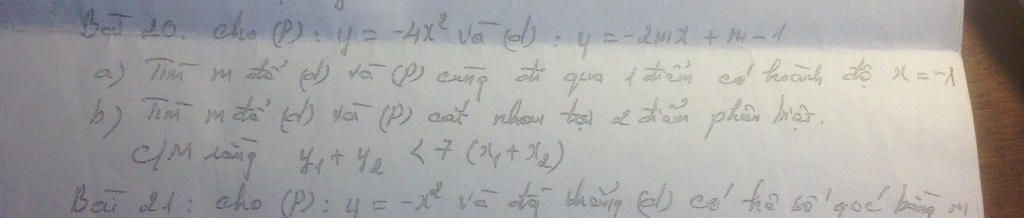 Bài 20. cho (P): y = -4x² và (d): y = -2mx + m - 1
a) Tìm m để (d) và (P) cùng đi qua 1 điểm có hoành độ x = -1
b) Tìm m để (d) và (P) cắt nhau tại 2 điểm phân biệt.
C/M rằng y₁ + y₂ < 7 (x₁ + x₂)
Bài 21: cho (P): y = -x² và đg thẳng (d) có hệ số góc bằng m